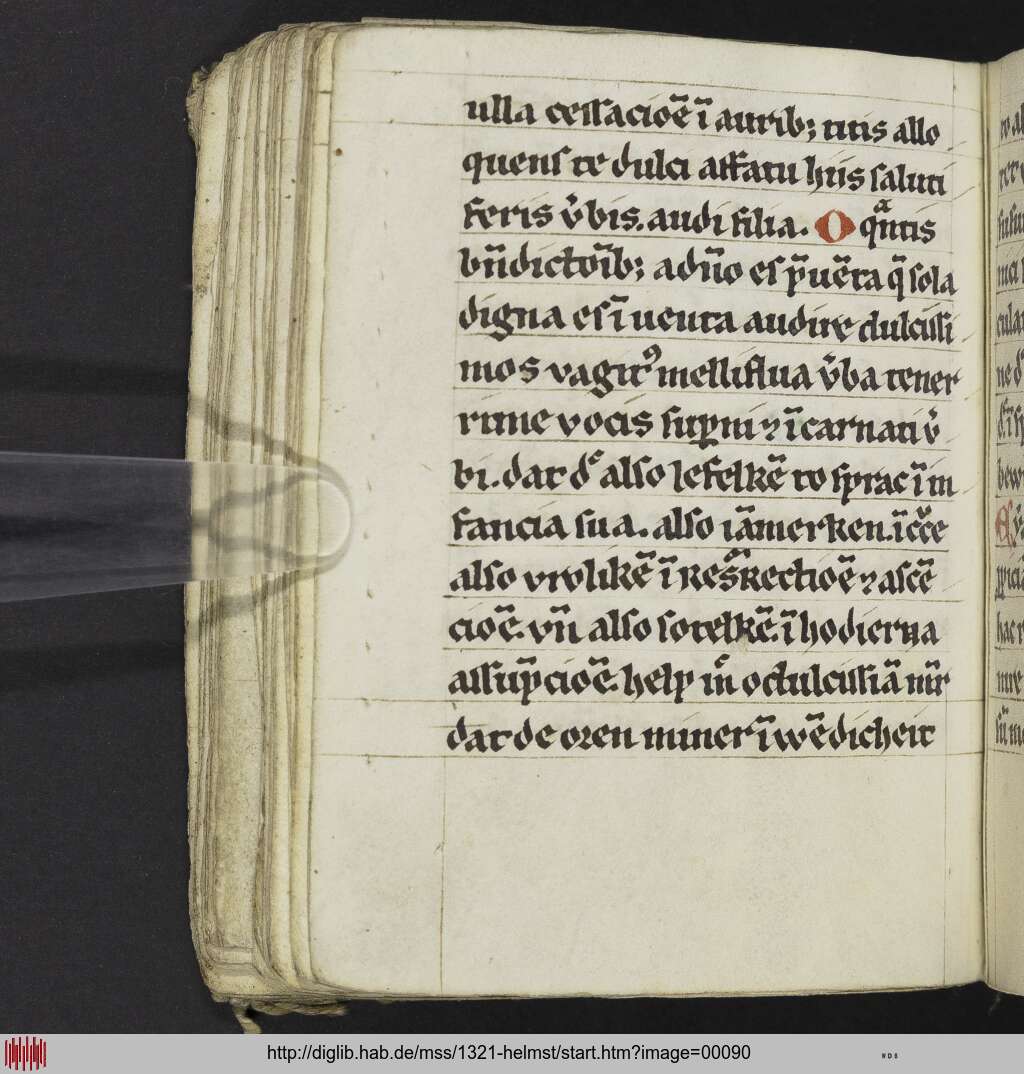 ulla cessacioē ī aurib; tuis allo
quens te dulci affatu hiis saluti
feris v̄bis. audi filia. O qͣntis
bn̄dictōīb; adn̄o es p̄uēta q̄ sola
digna es īuenta audire dulcissi
mos vagitꝰ melliflua v̄ba tener
rime vocis suꝑni ⁊ īcarnati v̄
bi. dat dͤ also lefelkē to sprac ī in
fancia sua. also iāmerken. ī cͨce
also vrolikē ī resͬrectioē ⁊ ascē
cioē. vn̄ also sotelkē. ī hodierna
assūpcioē. help mͥ o dulcissiā mr̄
dat de oren miner ī wēdicheit
http://diglib.hab.de/mss/1321-helmst/start.htm?image=00090